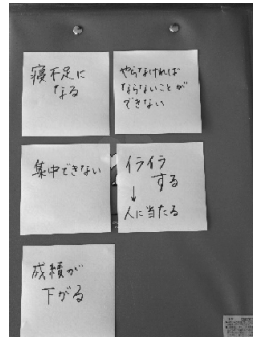 寝不足に
なる
やらなければ
ならないことが
できない
集中できない
イライラ
する
↓
人に当たる
成績が
下がる